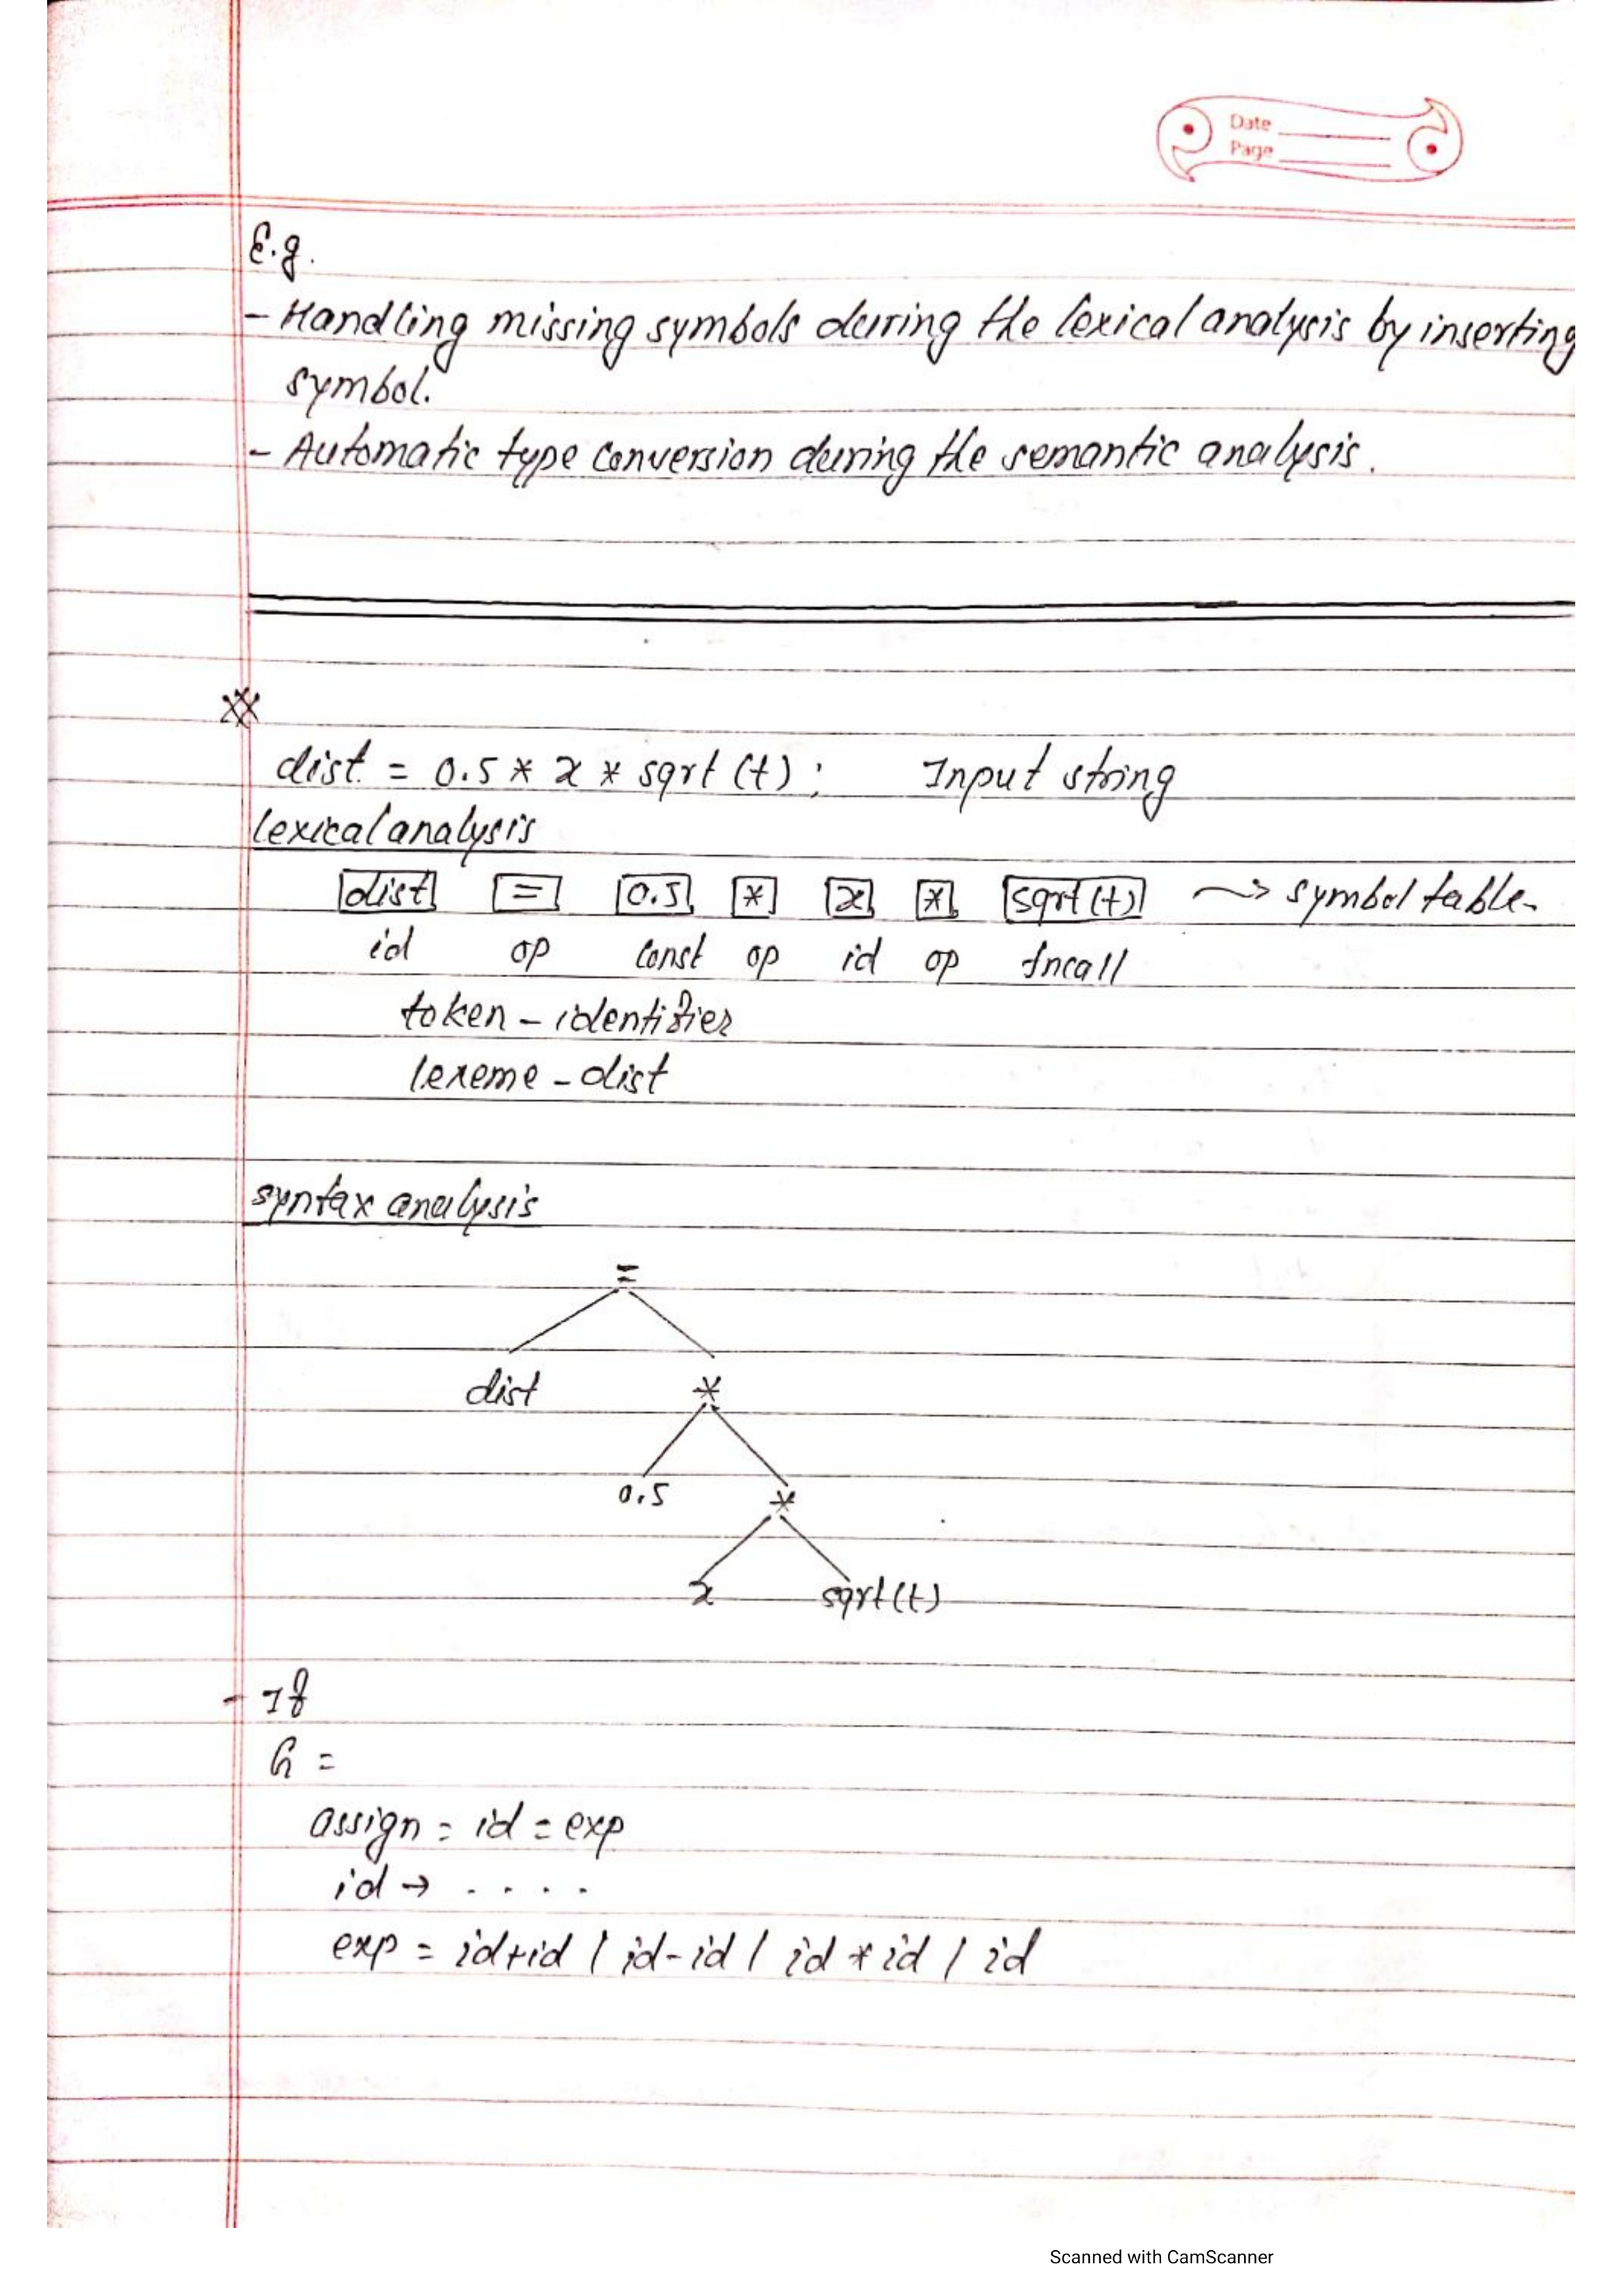 Date
Page
E.g.
- Handling missing symbols during the lexical analysis by inserting
symbol.
- Automatic type conversion during the semantic analysis.
dist = 0.5 * x * sqrt (t) ; Input string
lexical analysis
dist = 0.5 * x * sqrt (t) → symbol table
id op const op id op fncall
token - identifier
lexeme - dist
syntax analysis
=
dist *
0.5 *
x sqrt (t)
- If
G =
assign = id = exp
id → . . . .
exp = id+id / id-id / id * id / id
Scanned with CamScanner